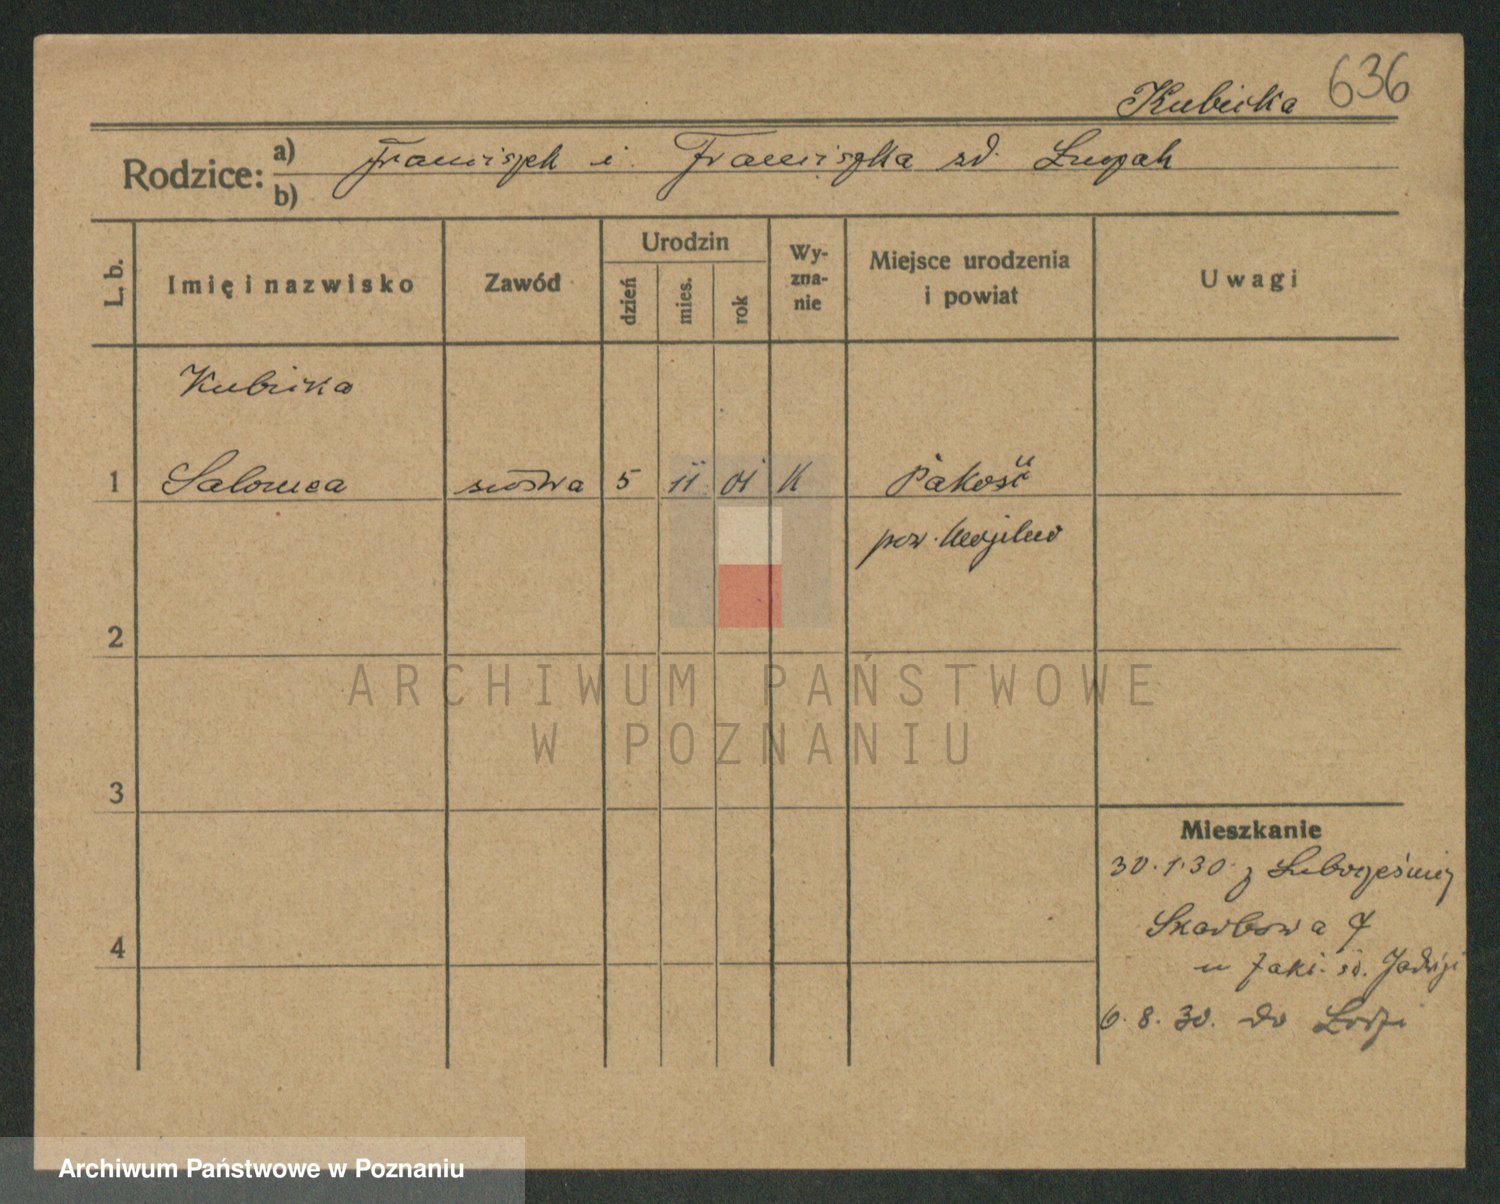 Kubicka 636
Rodzice: a) Franciszek i Franciszka zd.
b)
L. b. Imię i nazwisko Zawód Urodzin dzień mies. rok Wyznanie Miejsce urodzenia i powiat Uwagi
Kubicka
1 Salomea siostra 5 11 01 K Pakość
pow. Mogilno
2
ARCHIWUM PAŃSTWOWE
W POZNANIU
3
Mieszkanie
30.1.30 z
Skarbowa 7
4
u Zakł. św. Jadwigi
6.8.30. do Łodzi
Archiwum Państwowe w Poznaniu